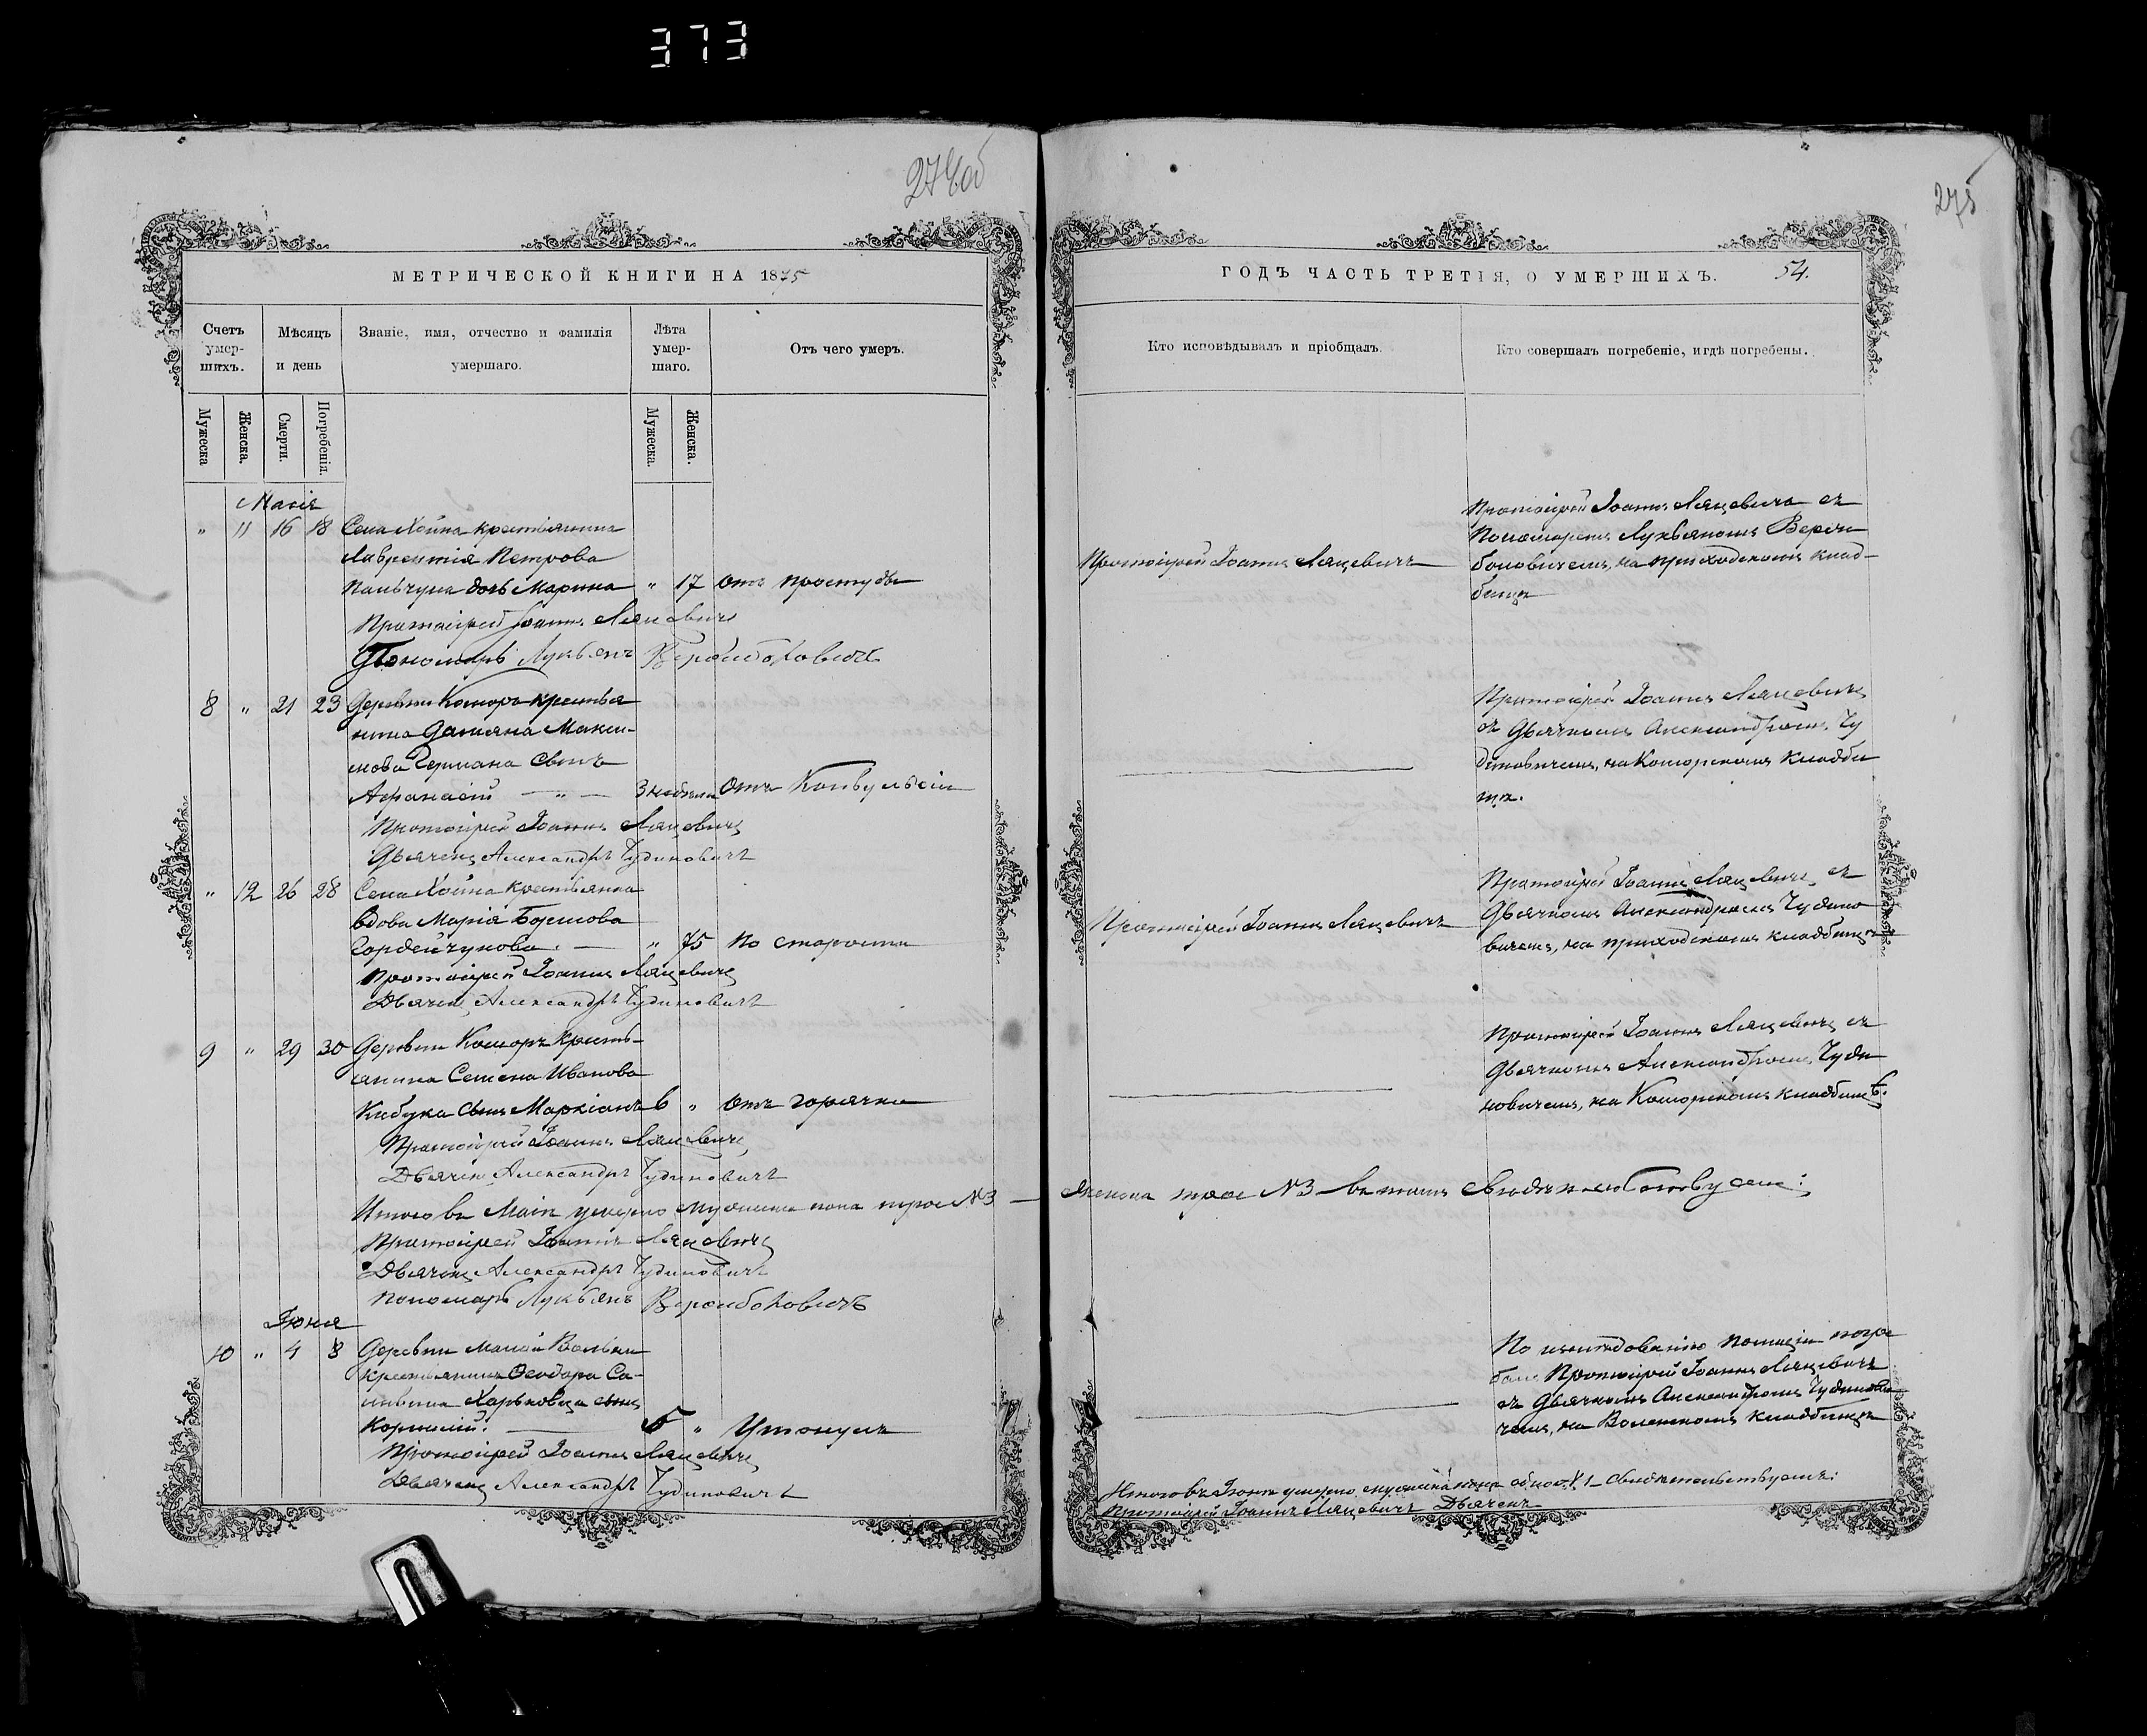 373
274об
275
МЕТРИЧЕСКОЙ КНИГИ НА 1875
Счетъ умер-шихъ.
Мѣсяцъ и день
Званіе, имя, отчество и фамилія умершаго.
Лѣта умер-шаго.
Отъ чего умеръ.
Мужеска
Женска.
Смерти.
Погребенія.
Мужеска.
Женска.
Маія
" 11 16 18 Села Хойна крестьянина
Лаврентія Петрова
дочь Марина " 17 отъ простуды
Протоіерей Іоаннъ Ляцевичъ
Пономарь Лукьянъ
8 " 21 23 Деревни Комора крестья
нина Дамяна Макси-
мова Германа сынъ
Афанасій — " — 3 недѣли Отъ Конвульсіи
Протоіерей Іоаннъ Ляцевичъ
Дьячекъ Александръ Чудиновичъ
" 12 26 28 Села Хойна крестьянка
вдова Марія
Гордейчукова. — " 75 по старости
Протоіерей Іоаннъ Ляцевичъ
Дьячекъ Александръ Чудиновичъ
9 " 29 30 Деревни Коморъ кресть-
янина Семена Иванова
сынъ Маркіанъ 6 " отъ горячки
Протоіерей Іоаннъ Ляцевичъ
Дьячекъ Александръ Чудиновичъ
Итого въ Маіи умерло мужеска пола трое №3 —
Протоіерей Іоаннъ Ляцевичъ
Дьячекъ Александръ Чудиновичъ
Пономарь Лукьянъ
Іюня
10 " 4 8 Деревни Малой
крестьянина Ѳеодора Са-
сынъ
Корнилій. — 6 " Утонулъ
Протоіерей Іоаннъ Ляцевичъ
Дьячекъ Александръ Чудиновичъ
ГОДЪ ЧАСТЬ ТРЕТІЯ, О УМЕРШИХЪ. 54.
Кто исповѣдывалъ и пріобщалъ.
Кто совершалъ погребеніе, и гдѣ погребены.
Протоіерей Іоаннъ Ляцевичъ
Протоіерей Іоаннъ Ляцевичъ съ
Пономаремъ Лукьяномъ
на приходскомъ клад-
бищѣ
Протоіерей Іоаннъ Ляцевичъ
съ Дьячкомъ Александромъ Чу
диновичемъ, на Коморскомъ кладби
щѣ.
Протоіерей Іоаннъ Ляцевичъ
Протоіерей Іоаннъ Ляцевичъ съ
Дьячкомъ Александромъ Чудино
вичемъ, на приходскомъ кладбищѣ
Протоіерей Іоаннъ Ляцевичъ съ
Дьячкомъ Александромъ Чуди
новичемъ, на Коморскомъ кладбищѣ.
женска трое №3 — въ томъ свидѣтельствуемъ:
По изслѣдованію полиціи погре
балъ Протоіерей Іоаннъ Ляцевичъ
съ Дьячкомъ Александромъ Чудинови
чемъ, на кладбищѣ
Итого въ Іюнѣ умерло мужеска пола одинъ №1 — свидѣтельствуемъ:
Протоіерей Іоаннъ Ляцевичъ Дьячекъ